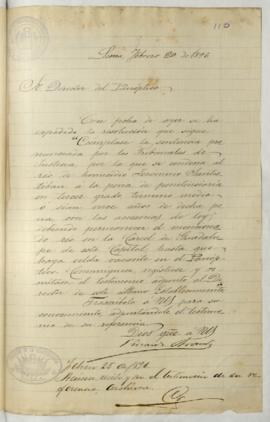 110
Lima, Febrero 20 de 1896
Sr Director del Panóptico
Con fecha de ayer se ha
expedido la resolución que sigue
"Cúmplase la sentencia pro
nunciada por los Tribunales de
Justicia, por la que se condena al
reo de homicidio
á la pena de penitenciaría
en tercer grado, término medio
ó sean once años de dicha pe
na, con las accesorias de ley;
debiendo permanecer el mencionado
reo en la Carcel de Guadalu
pe de esta Capital, hasta que
haya celda vacante en el Panóp
tico. Comuníquese, regístrese y re
mítase el testimonio adjunto al Di
rector de este último Establecimiento
Trascríbolo á US para su
conocimiento, adjuntándole el testimo
nio de su referencia.
Dios gue á US
Febrero 25 de 1896
Archívese